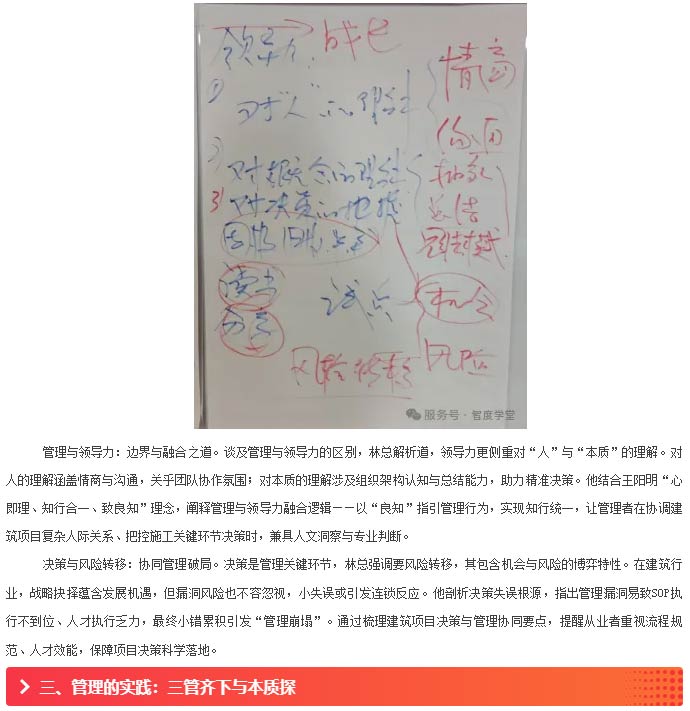 领导力: 战略
① 对“人”的理解
情商
沟通
对概念的理解
3) 对决策的把握
总结
读书
试点
机会
风险转移
风险
服务号 · 智度学堂
管理与领导力：边界与融合之道。谈及管理与领导力的区别，林总解析道，领导力更侧重对“人”与“本质”的理解。对
人的理解涵盖情商与沟通，关乎团队协作氛围；对本质的理解涉及组织架构认知与总结能力，助力精准决策。他结合王阳明“心
即理、知行合一、致良知”理念，阐释管理与领导力融合逻辑——以“良知”指引管理行为，实现知行统一，让管理者在协调建
筑项目复杂人际关系、把控施工关键环节决策时，兼具人文洞察与专业判断。
决策与风险转移：协同管理破局。决策是管理关键环节，林总强调要风险转移，其包含机会与风险的博弈特性。在建筑行
业，战略抉择蕴含发展机遇，但漏洞风险也不容忽视，小失误或引发连锁反应。他剖析决策失误根源，指出管理漏洞易致SOP执
行不到位、人才执行乏力，最终小错累积引发“管理崩塌”。通过梳理建筑项目决策与管理协同要点，提醒从业者重视流程规
范、人才效能，保障项目决策科学落地。
三、管理的实践：三管齐下与本质探